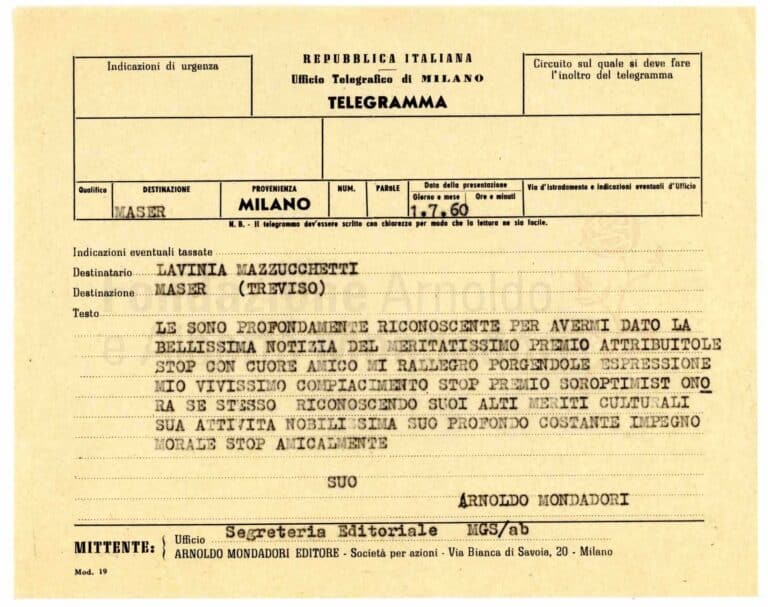 Indicazioni di urgenza
REPUBBLICA ITALIANA
Ufficio Telegrafico di MILANO
TELEGRAMMA
Circuito sul quale si deve fare
l'inoltro del telegramma
Qualifica
DESTINAZIONE
MASER
PROVENIENZA
MILANO
NUM.
PAROLE
Data della presentazione
Giorno e mese
Ore e minuti
1.7.60
Via d'istradamento e indicazioni eventuali d'Ufficio
N. B. - Il telegramma dev'essere scritto con chiarezza per modo che la lettura ne sia facile.
Indicazioni eventuali tassate
Destinatario LAVINIA MAZZUCCHETTI
Destinazione MASER (TREVISO)
Testo
LE SONO PROFONDAMENTE RICONOSCENTE PER AVERMI DATO LA
BELLISSIMA NOTIZIA DEL MERITATISSIMO PREMIO ATTRIBUITOLE
STOP CON CUORE AMICO MI RALLEGRO PORGENDOLE ESPRESSIONE
MIO VIVISSIMO COMPIACIMENTO STOP PREMIO SOROPTIMIST ONO
RA SE STESSO RICONOSCENDO SUOI ALTI MERITI CULTURALI
SUA ATTIVITA NOBILISSIMA SUO PROFONDO COSTANTE IMPEGNO
MORALE STOP AMICALMENTE
SUO
ARNOLDO MONDADORI
MITTENTE:
Ufficio Segreteria Editoriale MGS/ab
ARNOLDO MONDADORI EDITORE - Società per azioni - Via Bianca di Savoia, 20 - Milano
Mod. 19